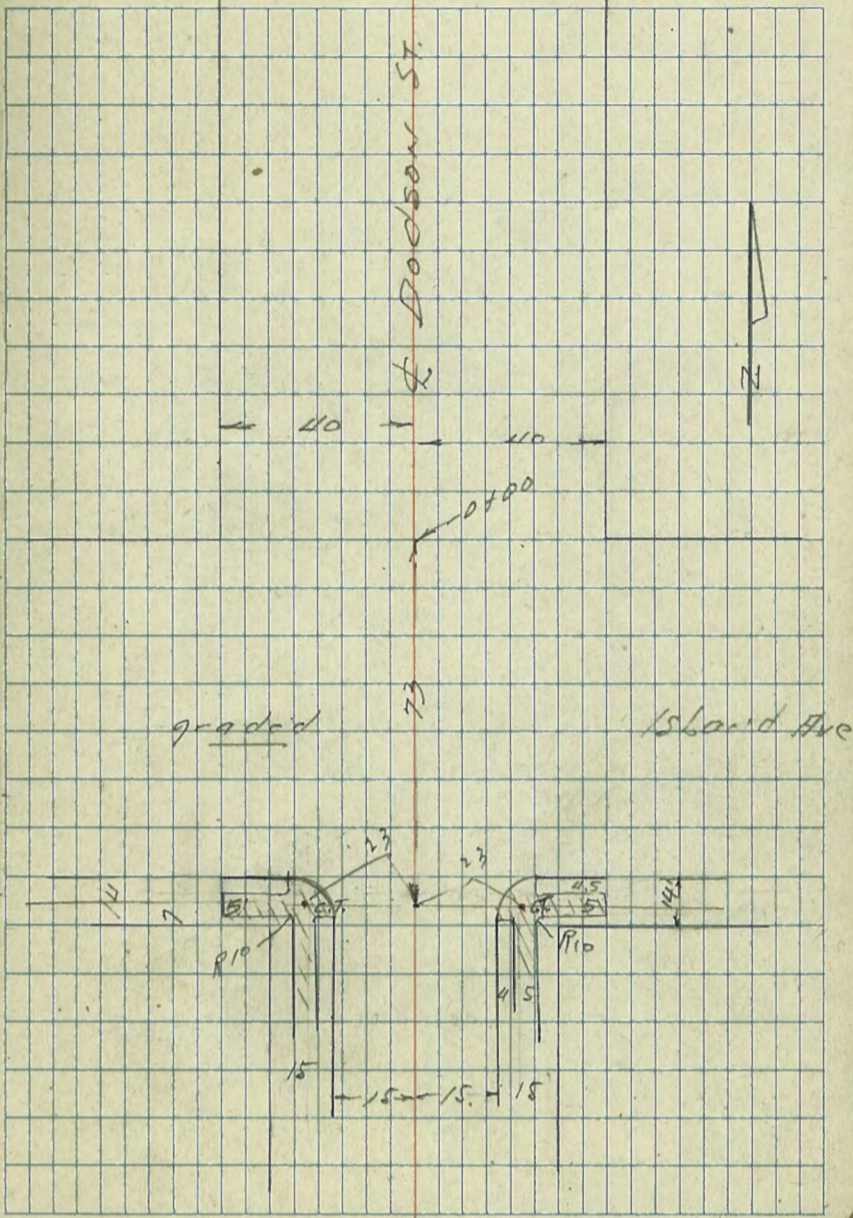 ℄ Dodson St.
N
40
40
0+00
73
graded
Island Ave
23
23
14
7
5
C.T.
C.T.
4.5
5
14
R10
R10
4
5
15
15
15
15